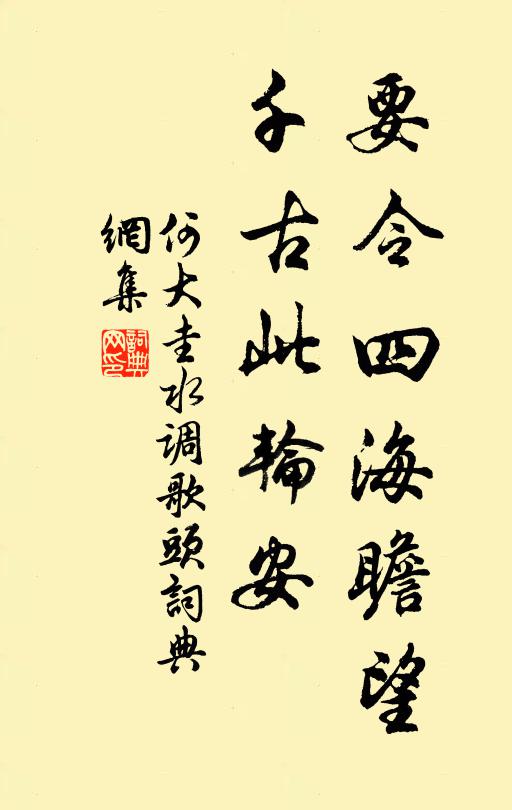 要令四海瞻望
千古此輪安
何大圭水调歌頭詞典
網集
詞典
网印